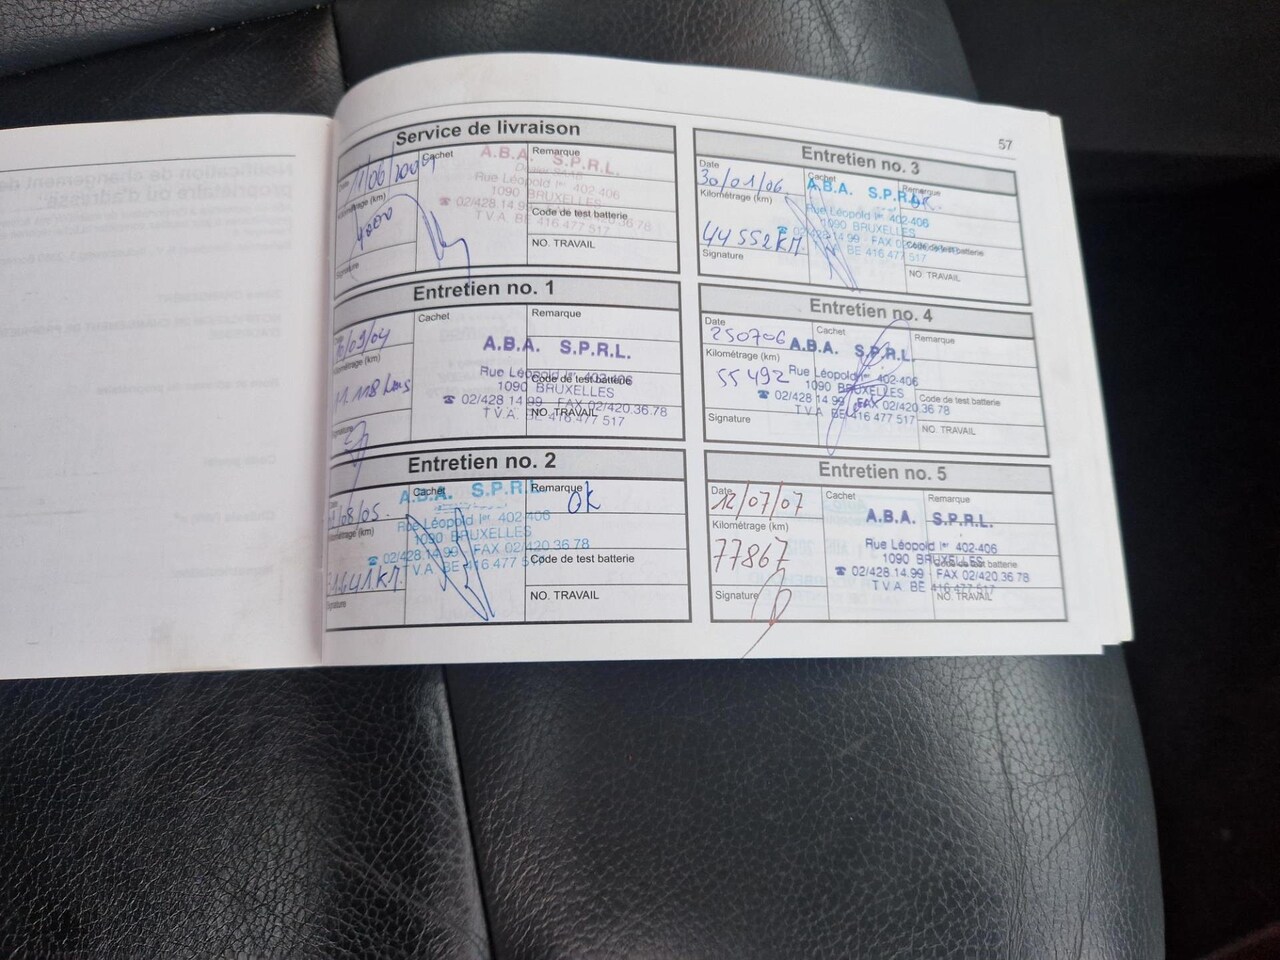 57
Service de livraison
Date
/06/2004
Cachet
Remarque
Kilométrage (km)
Code de test batterie
NO. TRAVAIL
Signature
A.B.A. S.P.R.L.
Rue Léopold Ier 402-406
1090 BRUXELLES
☎ 02/428.14.99
T.V.A. BE 416 477 517
Entretien no. 1
Date
/09/04
Cachet
Remarque
Kilométrage (km)
Code de test batterie
NO. TRAVAIL
Signature
A.B.A. S.P.R.L.
Rue Léopold Ier 402-406
1090 BRUXELLES
☎ 02/428 14 99 - FAX 02/420.36.78
T.V.A. BE 416 477 517
Entretien no. 2
Date
/08/05.
Cachet
Remarque
OK
Kilométrage (km)
Code de test batterie
NO. TRAVAIL
Signature
A.B.A. S.P.R.L.
Rue Léopold Ier 402-406
1090 BRUXELLES
☎ 02/428.14.99 - FAX 02/420.36.78
T.V.A. BE 416 477 517
Entretien no. 3
Date
30/01/06.
Cachet
Remarque
OK.
Kilométrage (km)
44 552 KM.
Code de test batterie
NO. TRAVAIL
Signature
A.B.A. S.P.R.L.
Rue Léopold Ier 402-406
1090 BRUXELLES
☎ 02/428 14 99 - FAX
T.V.A. BE 416 477 517
Entretien no. 4
Date
250706
Cachet
Remarque
Kilométrage (km)
55 492
Code de test batterie
NO. TRAVAIL
Signature
A.B.A. S.P.R.L.
Rue Léopold Ier 402-406
1090 BRUXELLES
☎ 02/428 14.99 - FAX 02/420.36 78
T.V.A. BE 416 477 517
Entretien no. 5
Date
12/07/07
Cachet
Remarque
Kilométrage (km)
77867
Code de test batterie
NO. TRAVAIL
Signature
A.B.A. S.P.R.L.
Rue Léopold Ier 402-406
1090 BRUXELLES
☎ 02/428.14.99 - FAX 02/420.36 78
T.V.A. BE 416 477 517